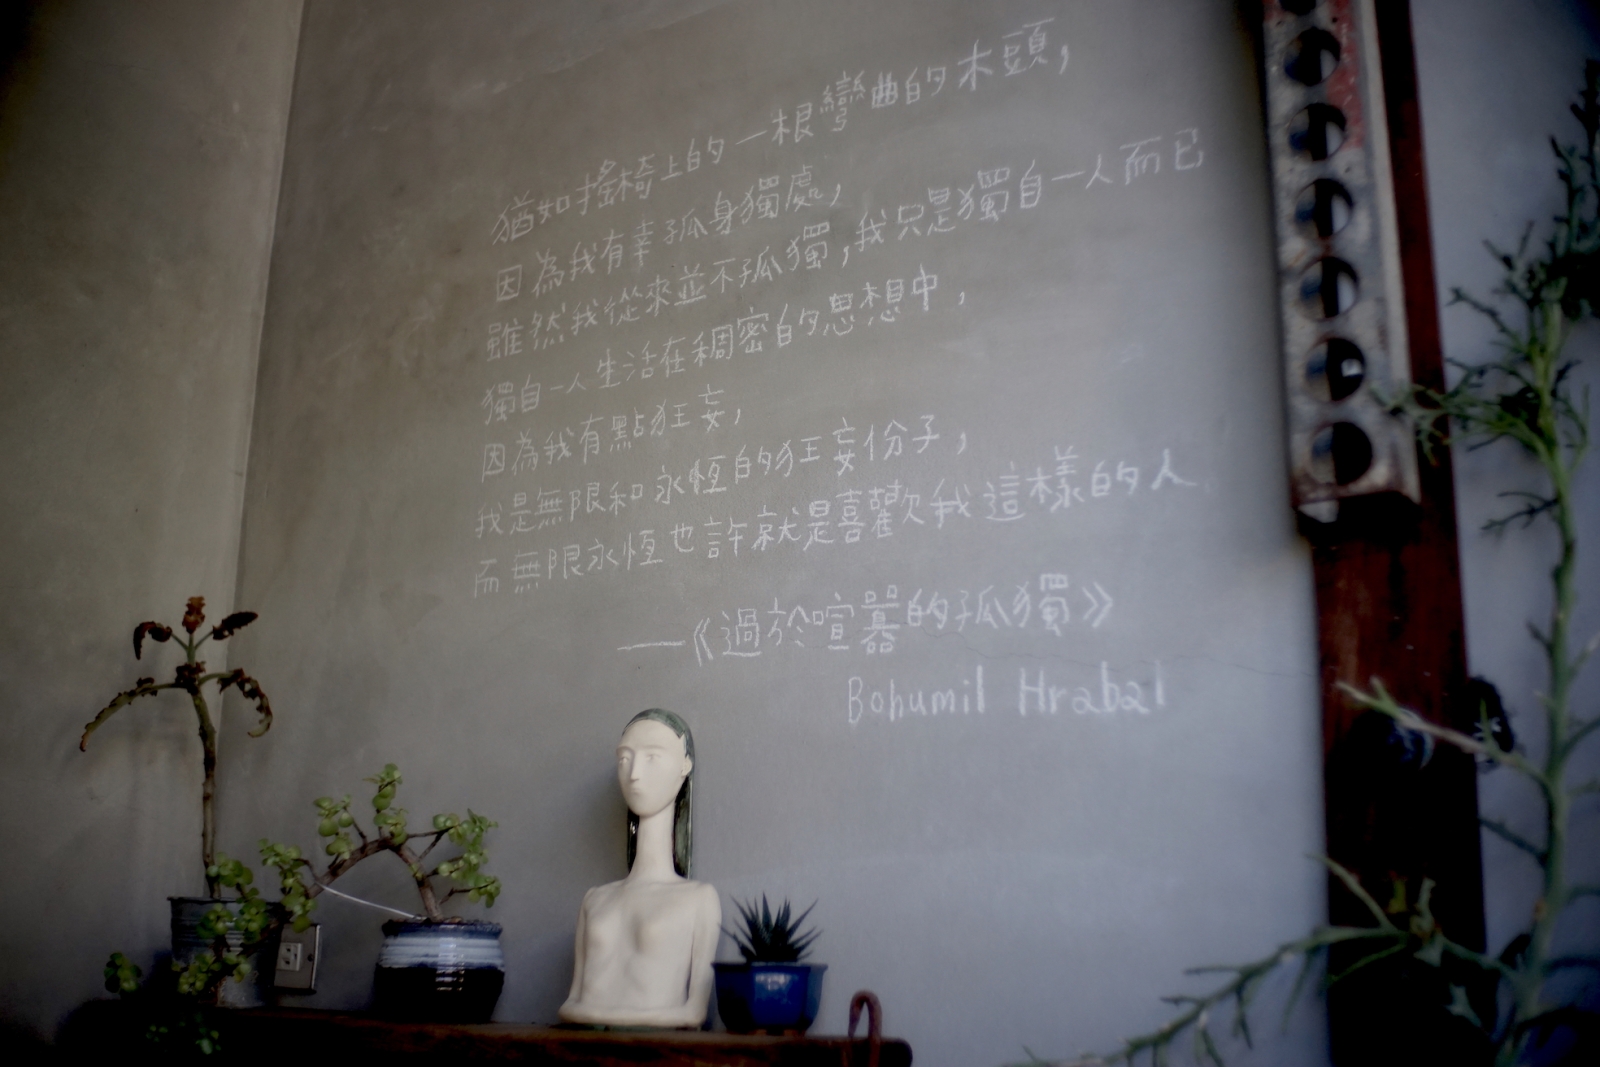 猶如搖椅上的一根彎曲的木頭，
因為我有幸孤身獨處，
雖然我從來並不孤獨，我只是獨自一人而已
獨自一人生活在稠密的思想中，
因為我有點狂妄，
我是無限和永恆的狂妄份子，
而無限永恆也許就是喜歡我這樣的人
——《過於喧囂的孤獨》
Bohumil Hrabal